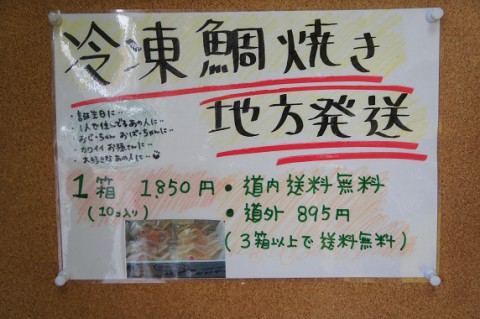 冷凍鯛焼き
地方発送
・誕生日に…
・1人で住んでるあの人に…
・おじいちゃん おばあちゃんに…
・カワイイ お孫さんに…
・大好きなあの人に…
1箱 1,850円
(10コ入り)
・道内 送料無料
・道外 895円
(3箱以上で送料無料)